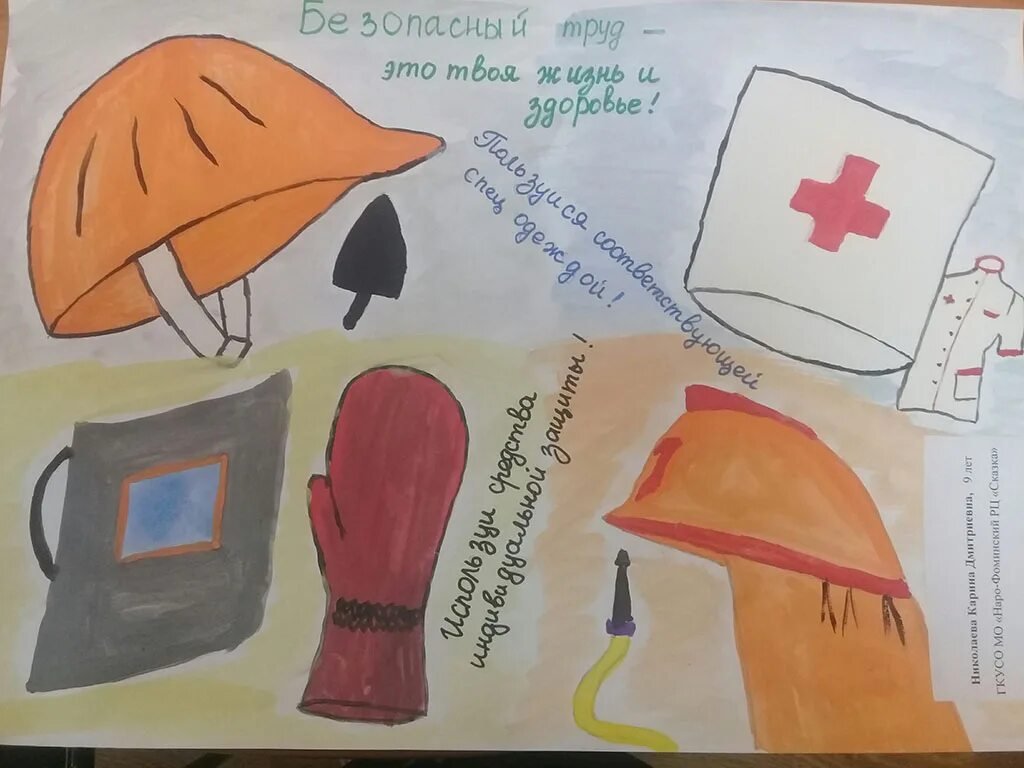 Безопасный труд –
это твоя жизнь и
здоровье!
Пользуйся соответствующей
спец одеждой!
Используй средства
индивидуальной защиты!
Николаева Карина Дмитриевна, 9 лет
ГКУСО МО «Наро-Фоминский РЦ «Сказка»